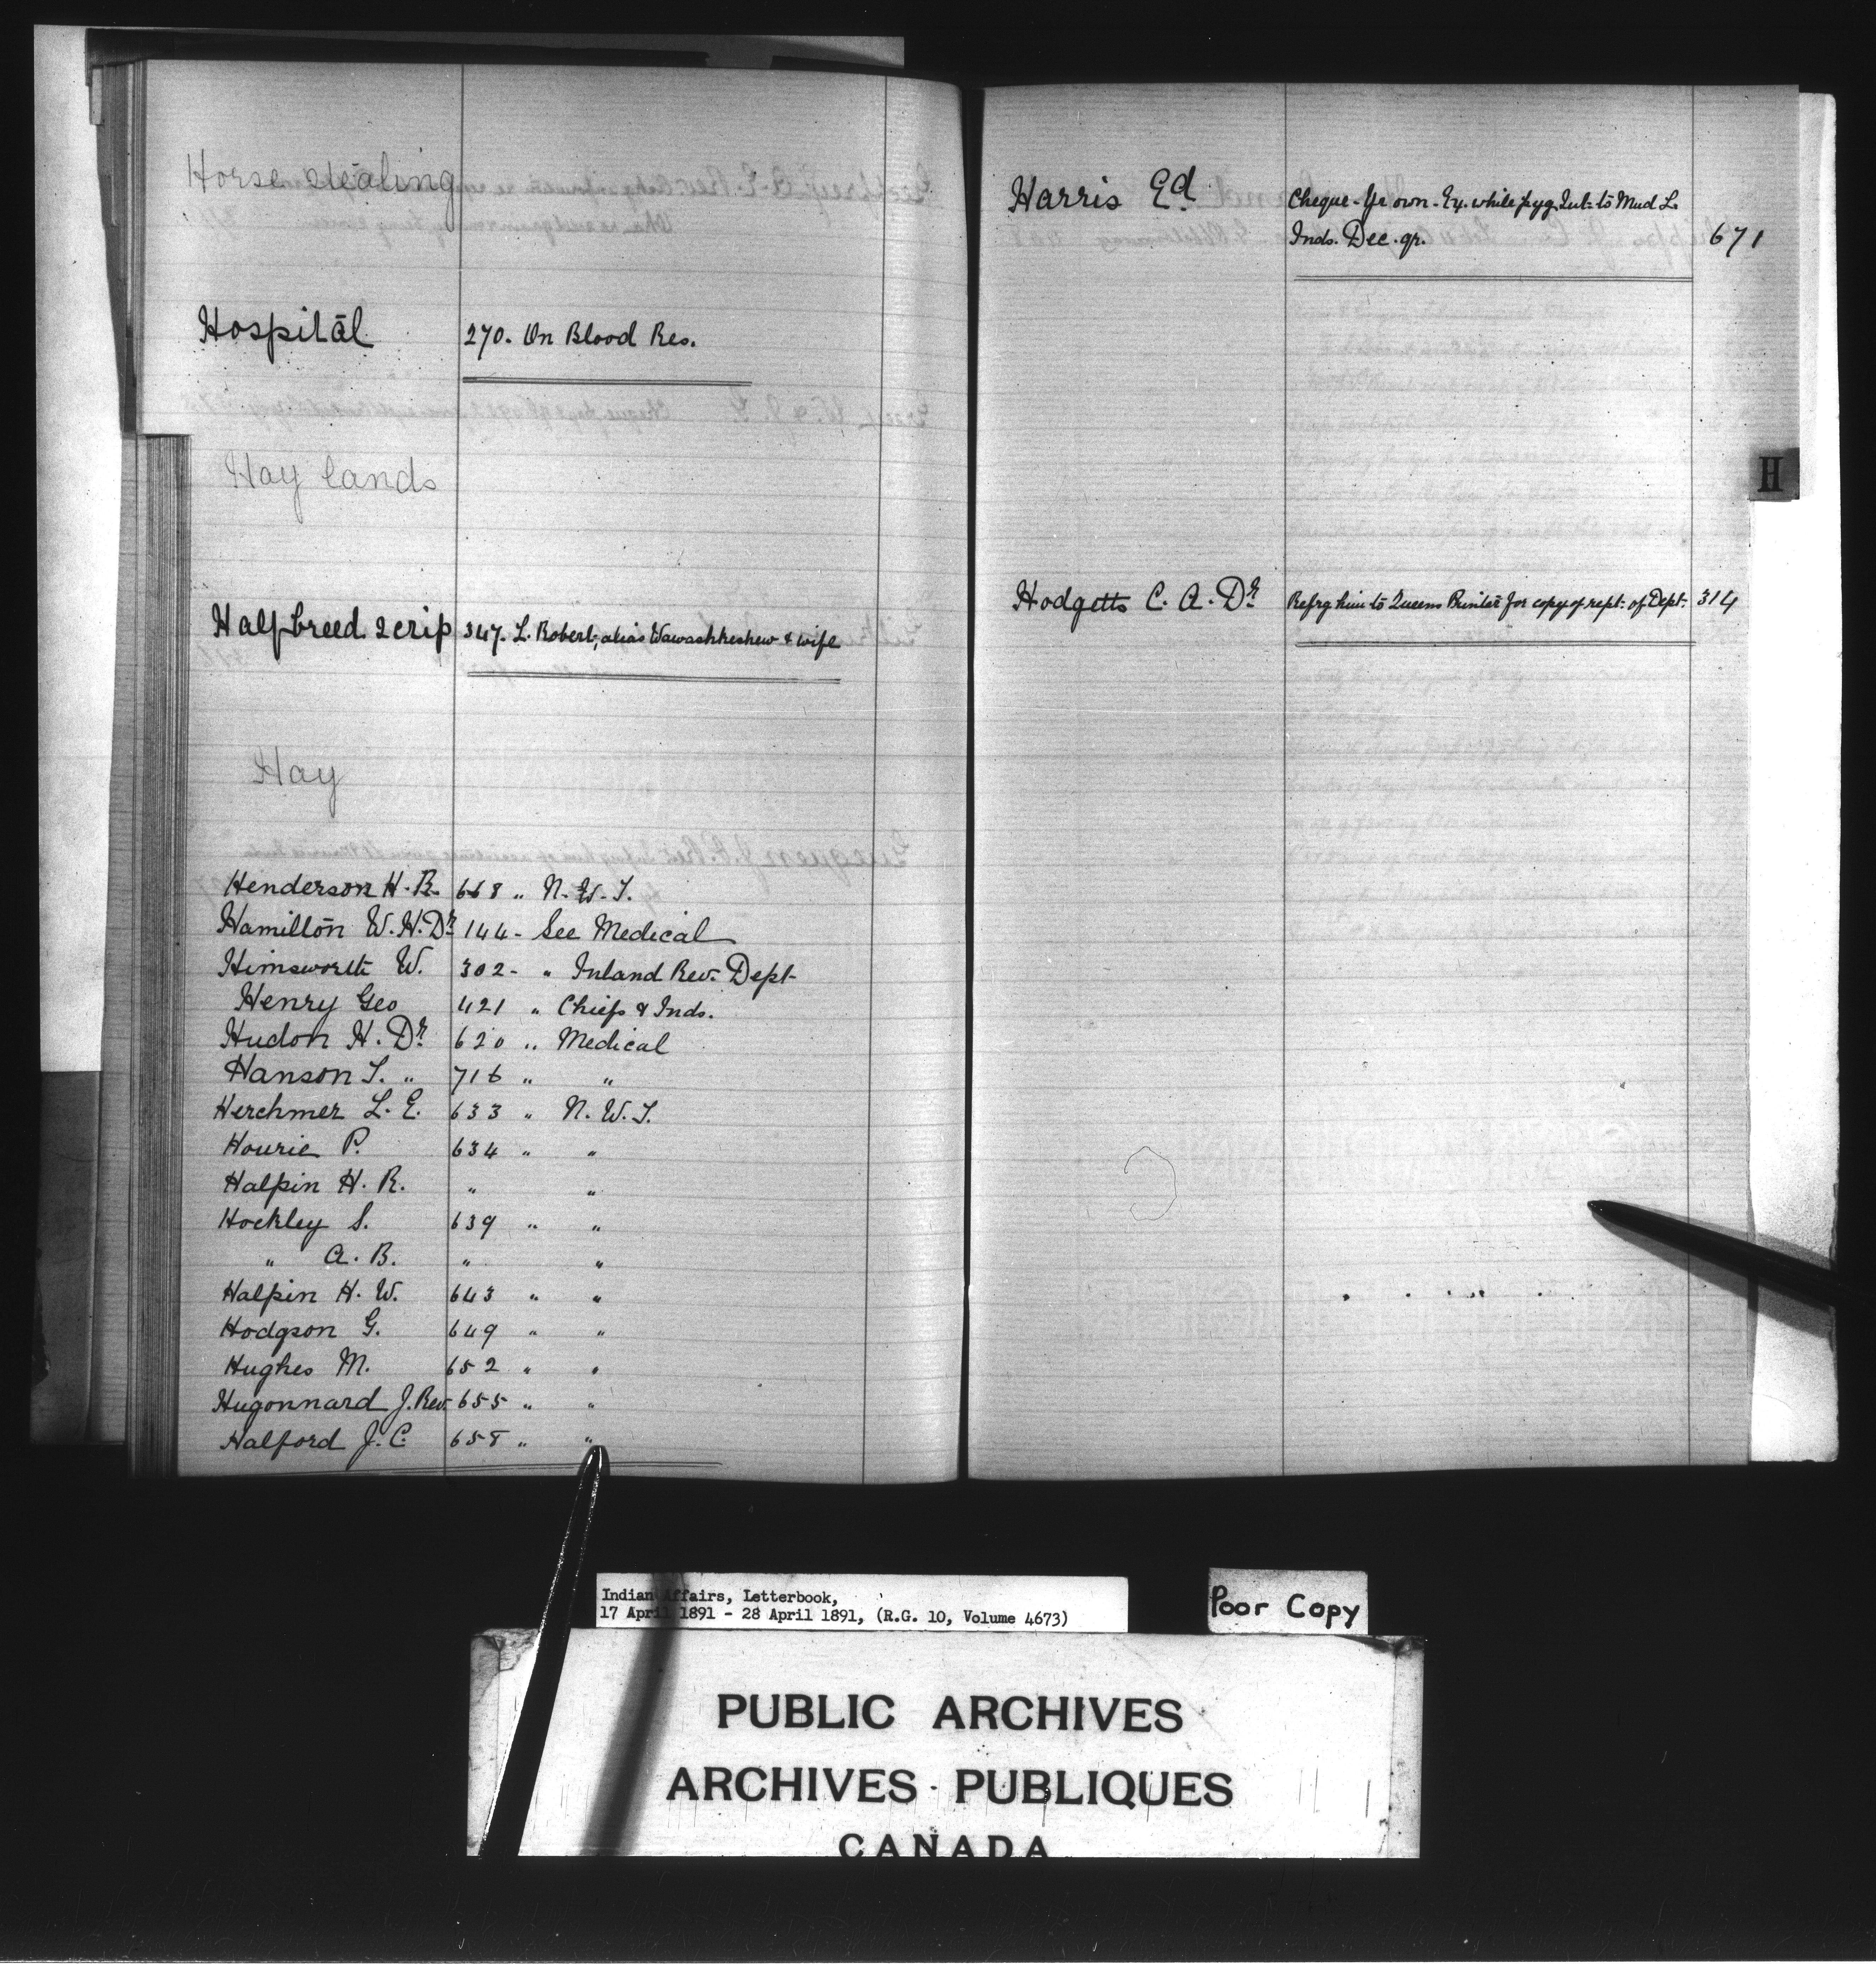 Horse stealing
Hospital 270. On Blood Res.
Hay lands
Halfbreed Scrip 347. L. Robert, alias Wawashkeshew & wife
Hay
Henderson H. R. 668 " N. W. T.
Hamilton W. H. Dr 144 - See Medical
Himsworth W. 302 - " Inland Rev. Dept
Henry Geo 421 " Chiefs & Inds.
Hudon H. Dr 620 " Medical
Hanson T. " 716 " "
Herchmer L. E. 633 " N. W. T.
Hourie P. 634 " "
Halpin H. R. " "
Hockley S. 639 " "
" A. B. " "
Halpin H. W. 643 " "
Hodgson G. 649 " "
Hughes M. 652 " "
Hugonnard J. Rev. 655 " "
Halford J. C. 658 " "
Harris Ed Cheque - Yr own - Ex. while pyg Int: to Mud L.
Inds. Dec. qr. 671
H
Hodgetts C. A. Dr Refrg him to Queens Printer for copy of rept: of Dept: 314
Indian Affairs, Letterbook,
17 April 1891 - 28 April 1891, (R.G. 10, Volume 4673)
Poor Copy
PUBLIC ARCHIVES
ARCHIVES PUBLIQUES
CANADA